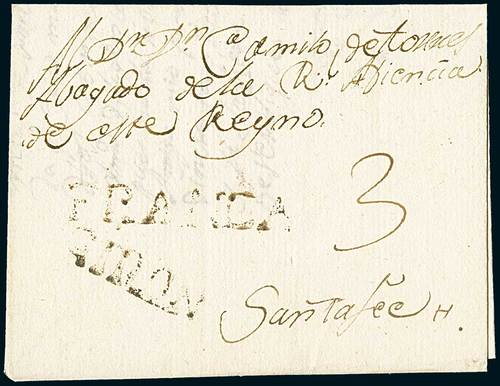 Al Dr. Dn. Camilo de torres
Abogado de la Rl. Adiencia
de este Reyno.
FRANCA
3
GIRON
Santafee